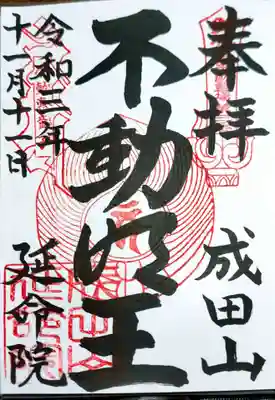 奉拝
成田山
不動明王
令和三年
十一月十一日
延命院